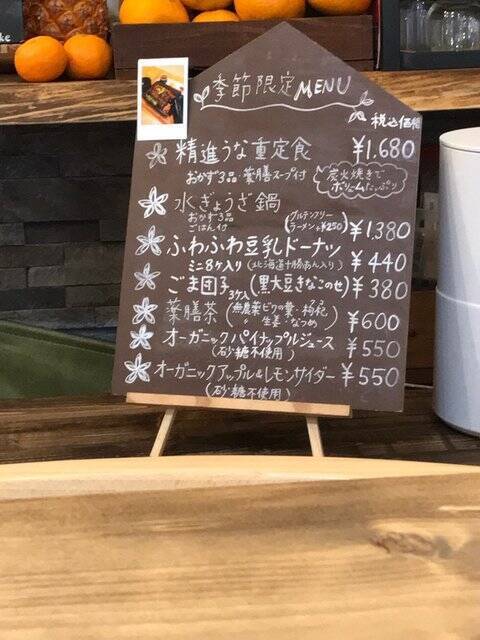 季節限定 MENU
税込価格
精進うな重定食 ¥1.680
おかず3品・薬膳スープ付
炭火焼きで
ボリュームたっぷり
水ぎょうざ鍋 ¥1.380
おかず3品
ごはん付
グルテンフリー
ラーメン+¥250
ふわふわ豆乳ドーナツ ¥440
ミニ8ケ入り(北海道十勝あん入り)
ごま団子 3ケ入り (黒大豆きなこのせ) ¥380
薬膳茶 (無農薬ビワの葉・枸杞 ¥600
生姜・なつめ)
オーガニックパイナップルジュース ¥550
(砂糖不使用)
オーガニックアップル&レモンサイダー ¥550
(砂糖不使用)